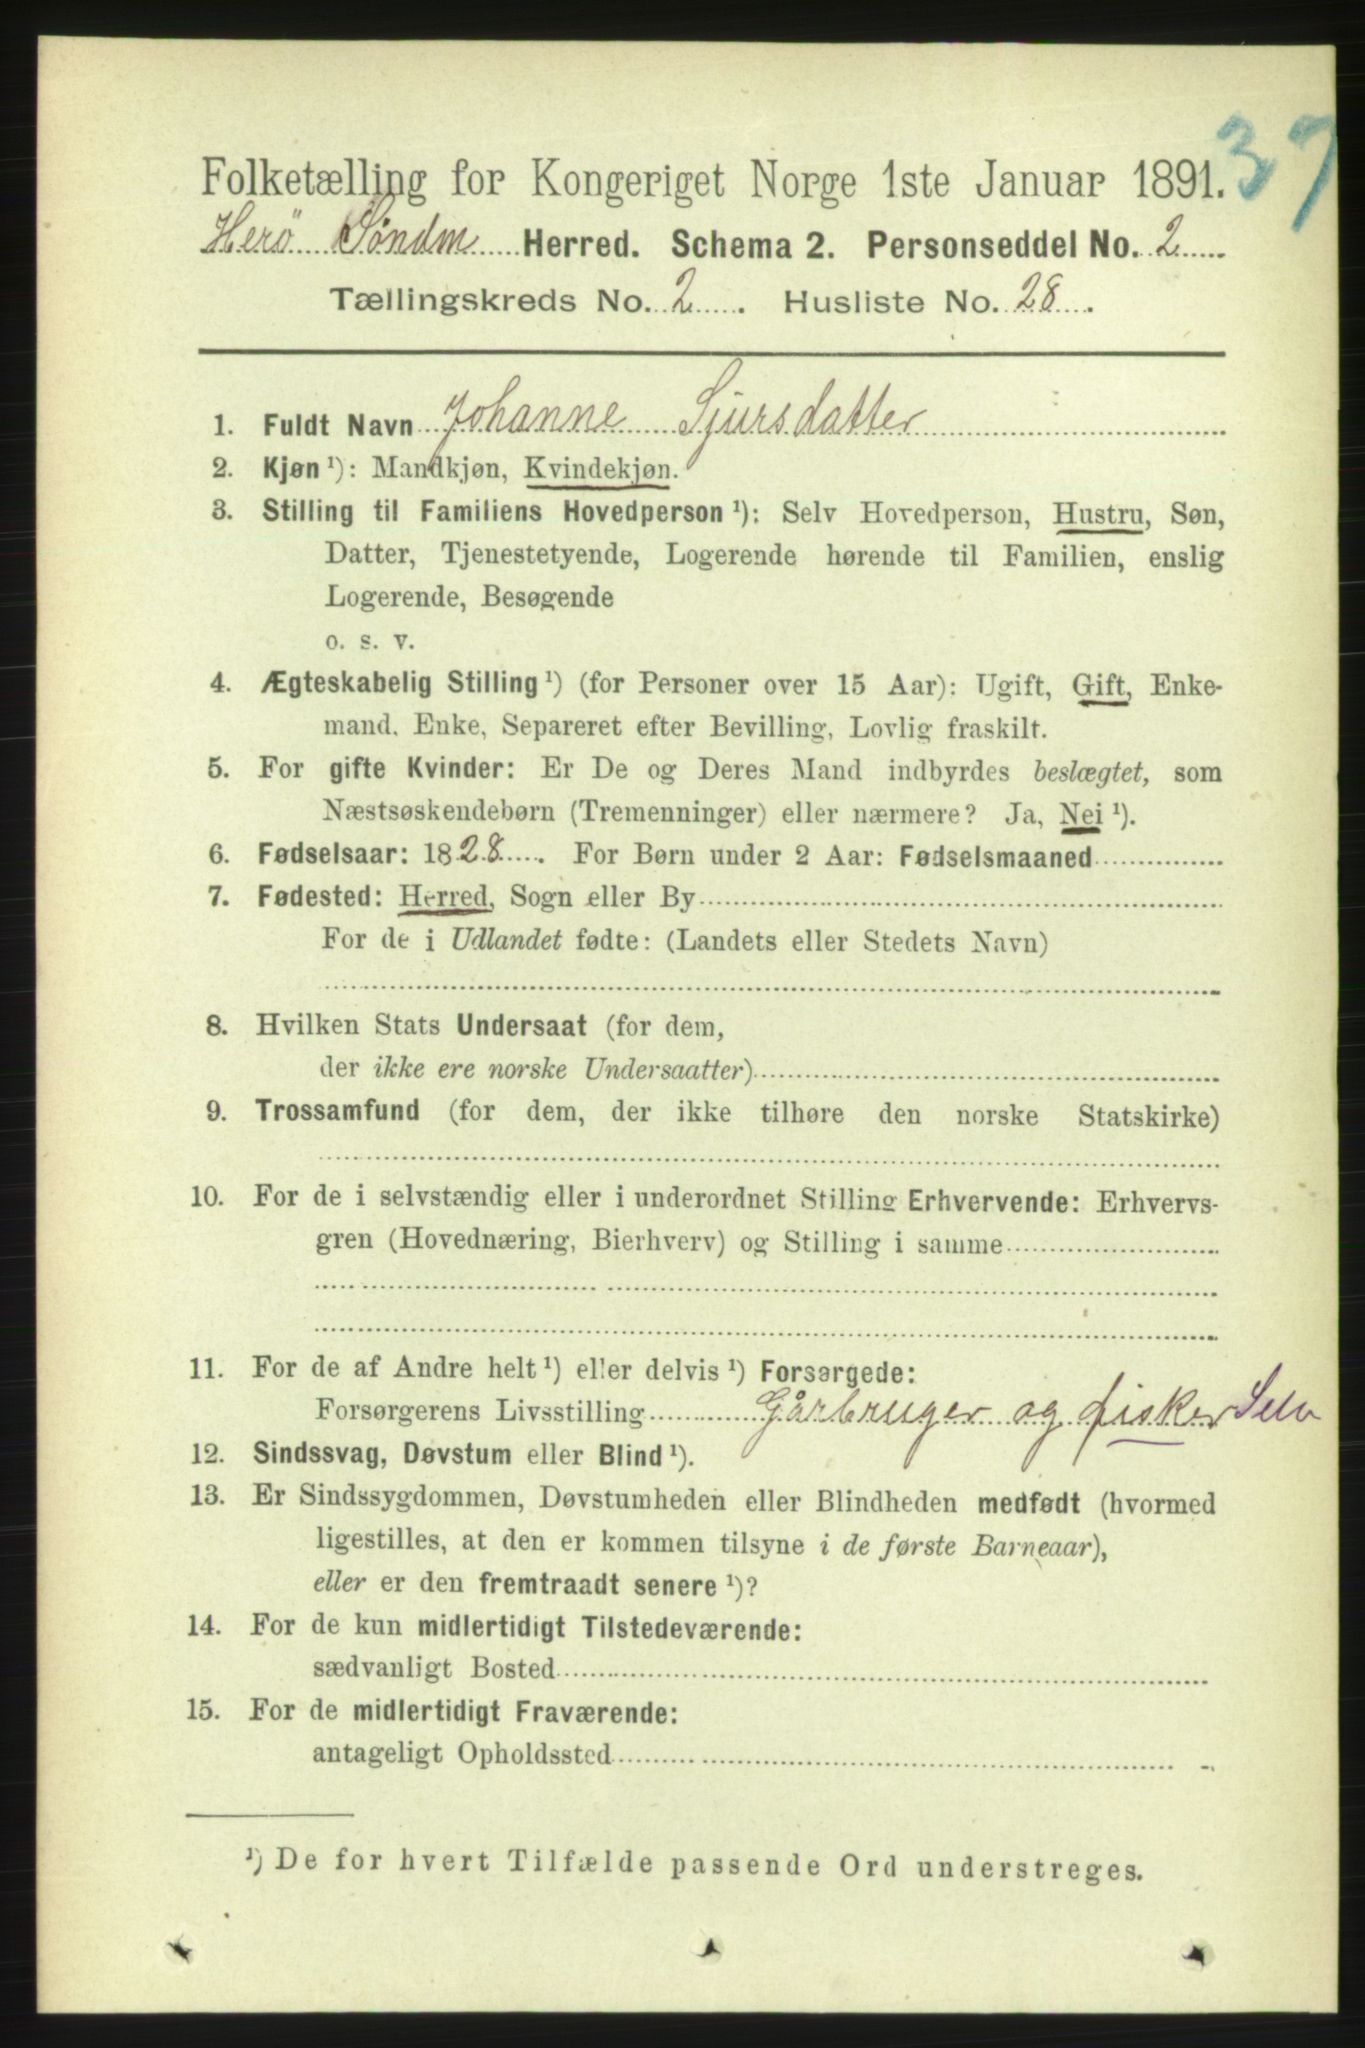 37
Folketælling for Kongeriget Norge 1ste Januar 1891.
Herö Søndm Herred. Schema 2. Personseddel No. 2
Tællingskreds No. 2. Husliste No. 28.
1. Fuldt Navn Johanne Sjursdatter
2. Kjøn ¹): Mandkjøn, Kvindekjøn.
3. Stilling til Familiens Hovedperson ¹): Selv Hovedperson, Hustru, Søn,
Datter, Tjenestetyende, Logerende hørende til Familien, enslig
Logerende, Besøgende
o. s. v.
4. Ægteskabelig Stilling ¹) (for Personer over 15 Aar): Ugift, Gift, Enke-
mand, Enke, Separeret efter Bevilling, Lovlig fraskilt.
5. For gifte Kvinder: Er De og Deres Mand indbyrdes beslægtet, som
Næstsøskendebørn (Tremenninger) eller nærmere? Ja, Nei ¹).
6. Fødselsaar: 1828. For Børn under 2 Aar: Fødselsmaaned
7. Fødested: Herred, Sogn eller By
For de i Udlandet fødte: (Landets eller Stedets Navn)
8. Hvilken Stats Undersaat (for dem,
der ikke ere norske Undersaatter)
9. Trossamfund (for dem, der ikke tilhøre den norske Statskirke)
10. For de i selvstændig eller i underordnet Stilling Erhvervende: Erhvervs-
gren (Hovednæring, Bierhverv) og Stilling i samme
11. For de af Andre helt ¹) eller delvis ¹) Forsørgede:
Forsørgerens Livsstilling Gårbruger og fisker Selv
12. Sindssvag, Døvstum eller Blind ¹).
13. Er Sindssygdommen, Døvstumheden eller Blindheden medfødt (hvormed
ligestilles, at den er kommen tilsyne i de første Barneaar),
eller er den fremtraadt senere ¹)?
14. For de kun midlertidigt Tilstedeværende:
sædvanligt Bosted
15. For de midlertidigt Fraværende:
antageligt Opholdssted
¹) De for hvert Tilfælde passende Ord understreges.